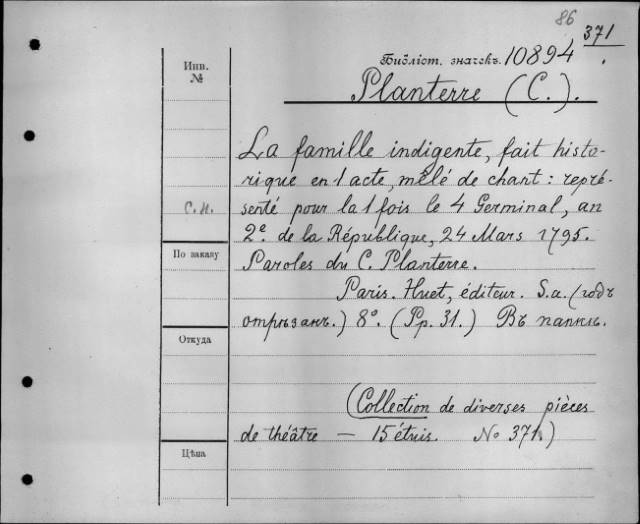 86
371
Инв.
№
Библіот. значекъ. 10894
Planterre (C.).
La famille indigente, fait histo-
rique en 1 acte, mêlé de chant: repré-
senté pour la 1 fois le 4 Germinal, an
С.П.
2e. de la République, 24 Mars 1795.
По заказу
Paroles du C. Planterre.
Paris. Huet, éditeur. S.a. (годъ
отрѣзанъ.) 8°. (Pp. 31.) Въ папкѣ.
Откуда
(Collection de diverses pièces
de théâtre — 15 étuis. No 371)
Цѣна